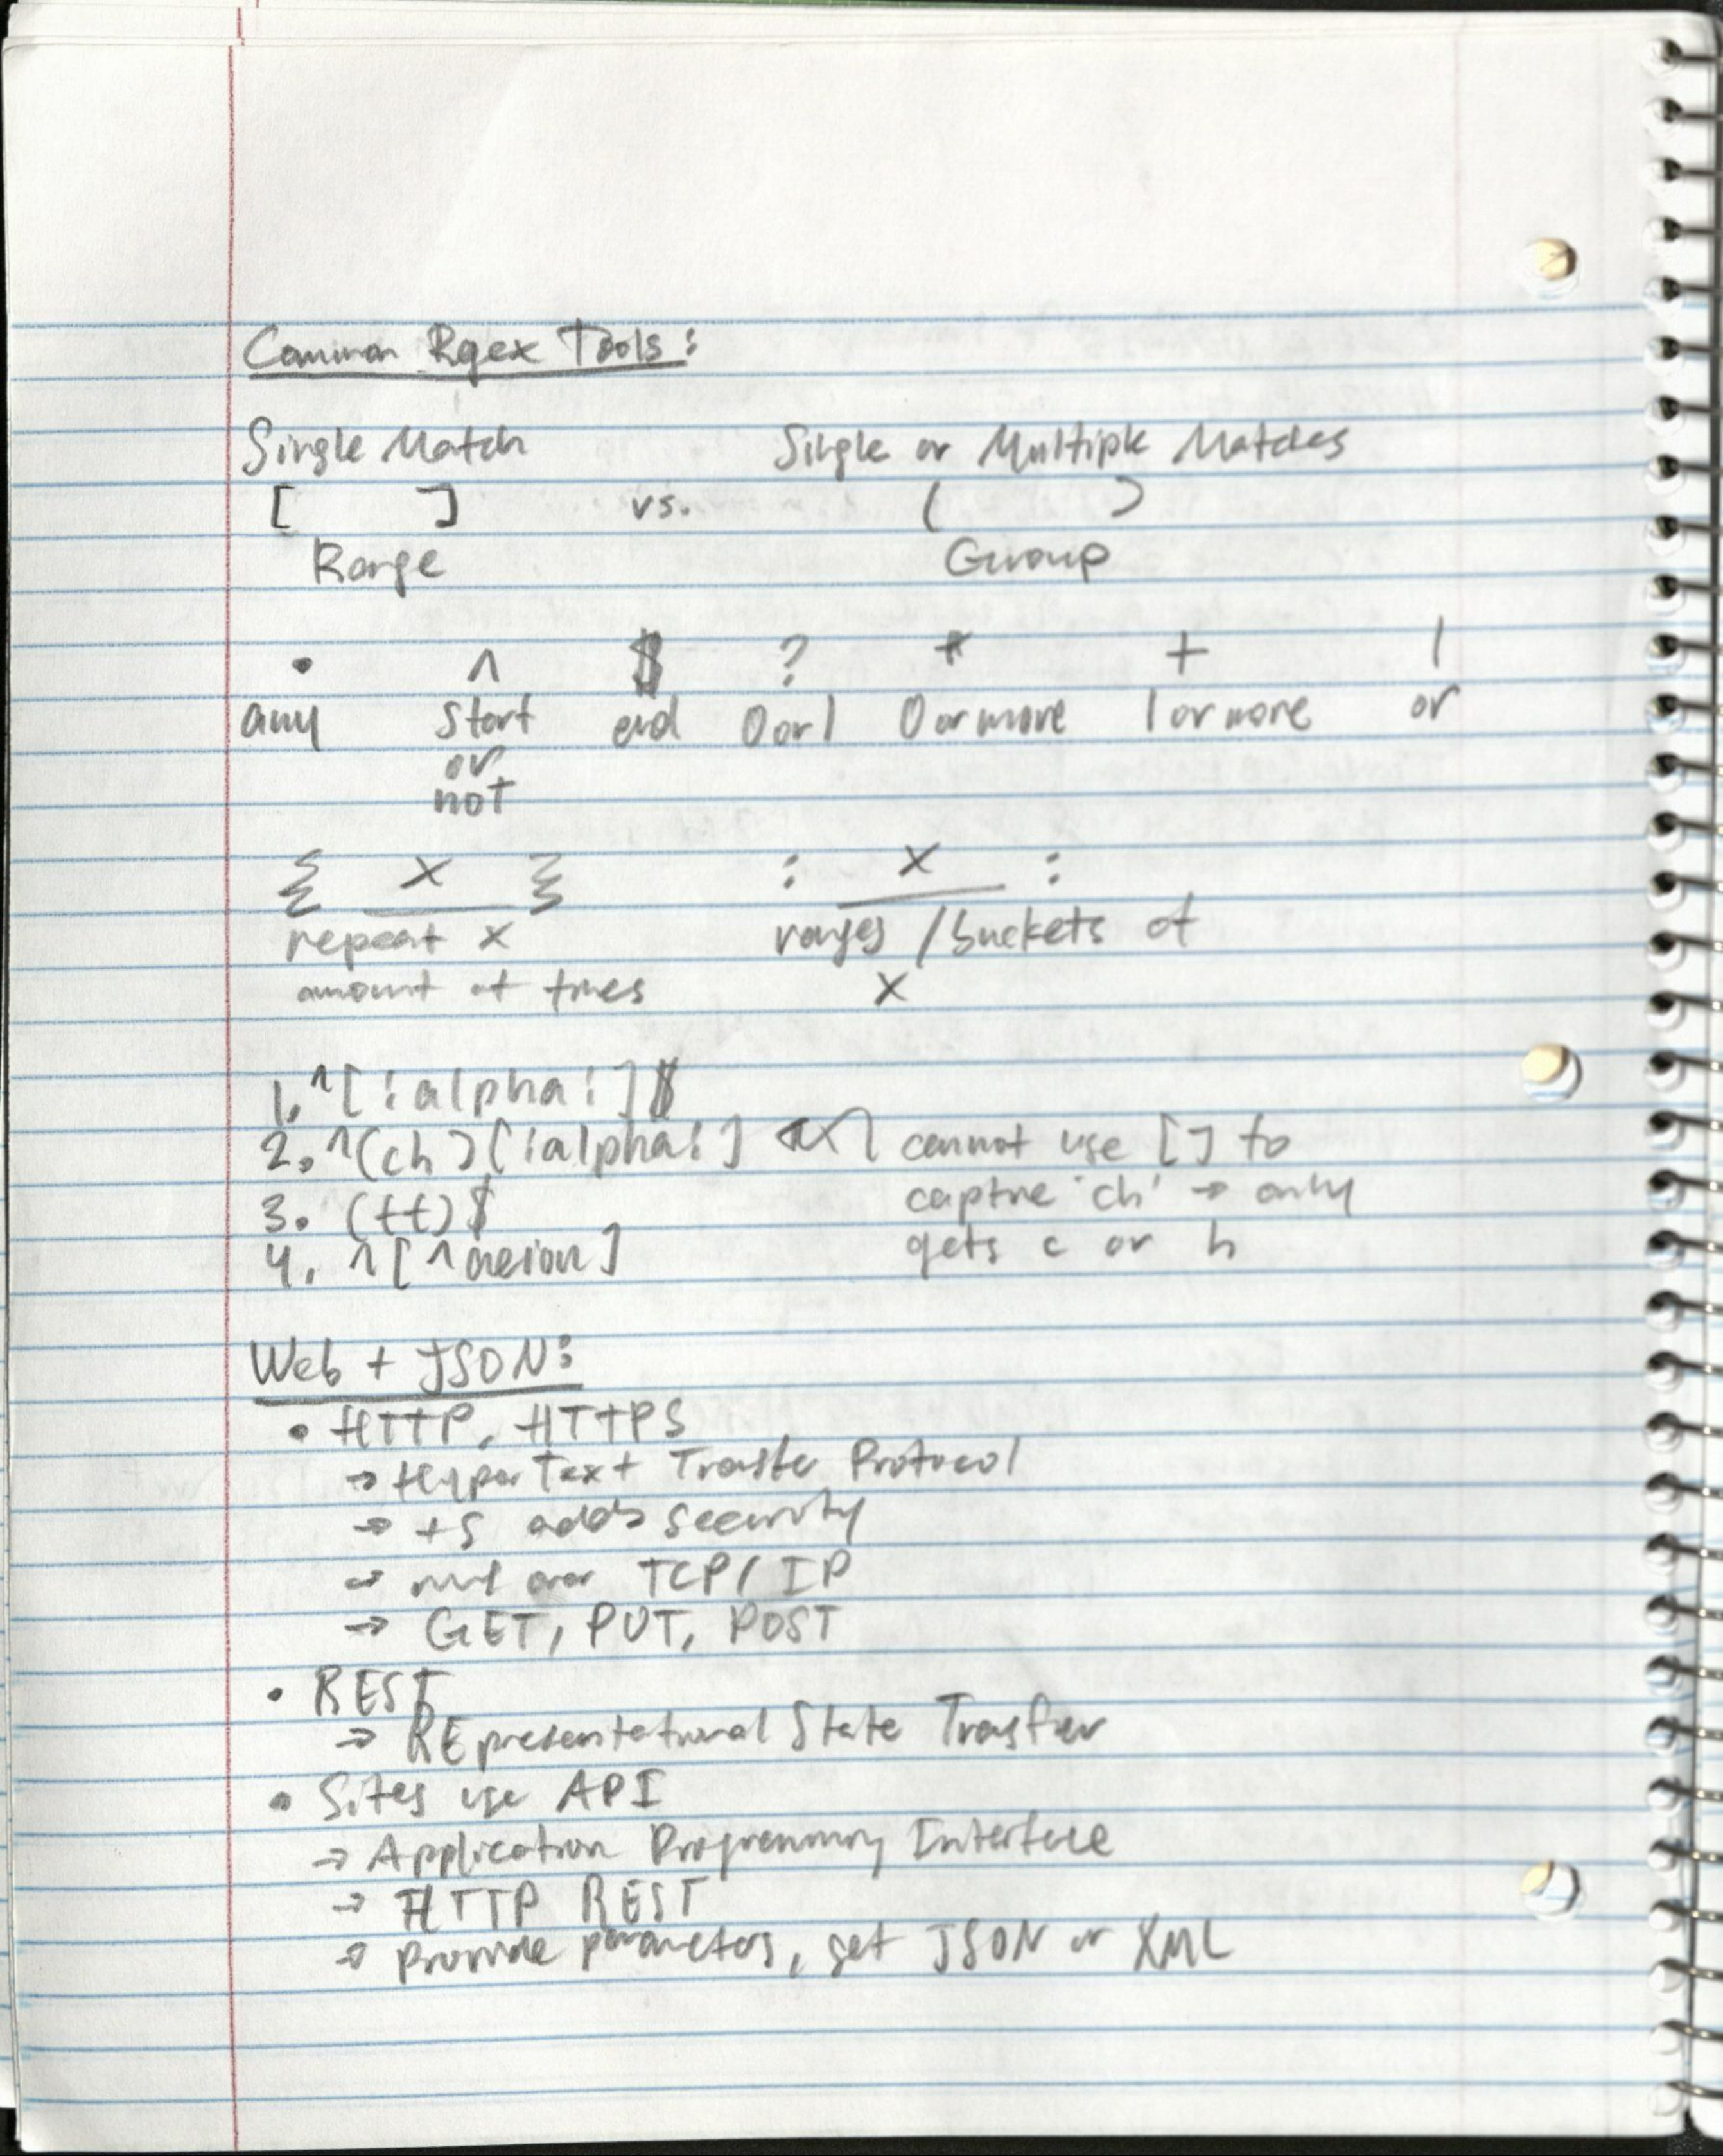 Common Rgex Tools:
Single Match Single or Multiple Matches
[ ] vs. ( )
Range Group
. ^ $ ? * + |
any start end 0 or 1 0 or more 1 or more or
or
not
{ x } : x :
repeat x ranges / buckets of
amount of times x
1. ^[:alpha:]$
2. ^(ch)[:alpha:] cannot use [] to
3. (tt)$ capture 'ch' → only
4. ^[^aeiou] gets c or h
Web + JSON:
• HTTP, HTTPS
→ Hyper Text Transfer Protocol
→ +S adds security
→ over TCP/IP
→ GET, PUT, POST
• REST
→ REpresentational State Transfer
• Sites use API
→ Application Programming Interface
→ HTTP REST
→ provide parameters, get JSON or XML